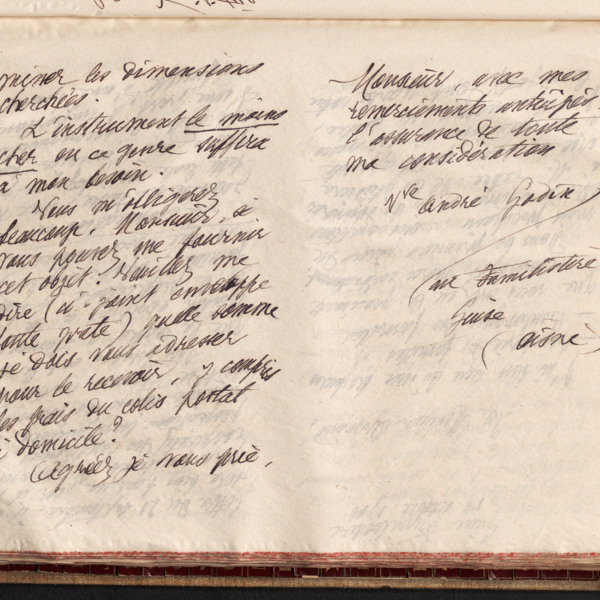 miner les dimensions
cherchées.
L'instrument le moins
cher en ce genre suffira
à mon besoin.
Vous m'obligerez
beaucoup, Monsieur, si
vous pouvez me fournir
cet objet. Veuillez me
dire (ci joint enveloppe
toute prête) quelle somme
je dois vous adresser
pour le recevoir, y compris
les frais du colis postal
à domicile?
Agréez je vous prie,
Monsieur, avec mes
remerciements anticipés
l'assurance de toute
ma considération
Vve André Godin
au Familistère
Guise
(Aisne)